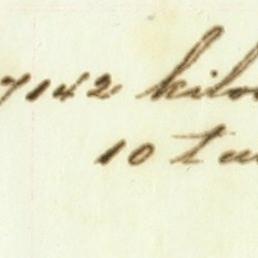 7142 kilo
10 t